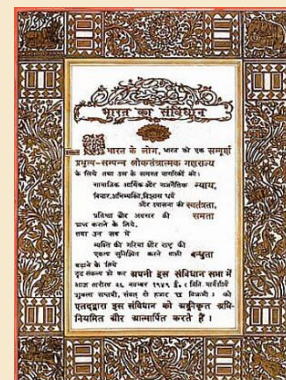 भारत का संविधान
हम भारत के लोग, भारत को एक सम्पूर्ण
प्रभुत्व-सम्पन्न लोकतंत्रात्मक गणराज्य
के लिये तथा उस के समस्त नागरिकों को:
सामाजिक आर्थिक और राजनैतिक न्याय,
विचार,अभिव्यक्ति,विश्वास धर्म
और उपासना की स्वतंत्रता,
प्रतिष्ठा और अवसर की समता
प्राप्त कराने के लिये,
तथा उन सब में
व्यक्ति की गरिमा और राष्ट्र की
एकता सुनिश्चित करने वाली बन्धुता
बढ़ाने के लिये
दृढ़ संकल्प हो कर अपनी इस संविधान सभा में
आज तारीख २६ नवम्बर १९४९ ई. (मिति मार्गशीर्ष
शुक्ला सप्तमी, संवत् दो हजार छ विक्रमी) को
एतद्द्वारा इस संविधान को अंगीकृत अधि-
नियमित और आत्मार्पित करते हैं।